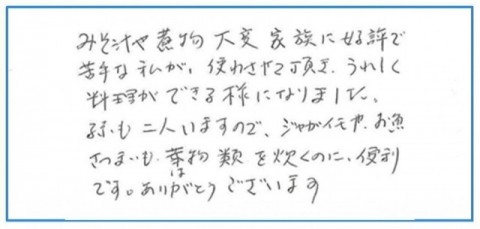 みそ汁や煮物 大変 家族に好評で
苦手な私が、使わさせて頂き、うれしく
料理ができる様になりました。
孫も二人いますので、ジャガイモや、お魚
さつまいも、葉物類を炊くのに、便利
です。ありがとうございます